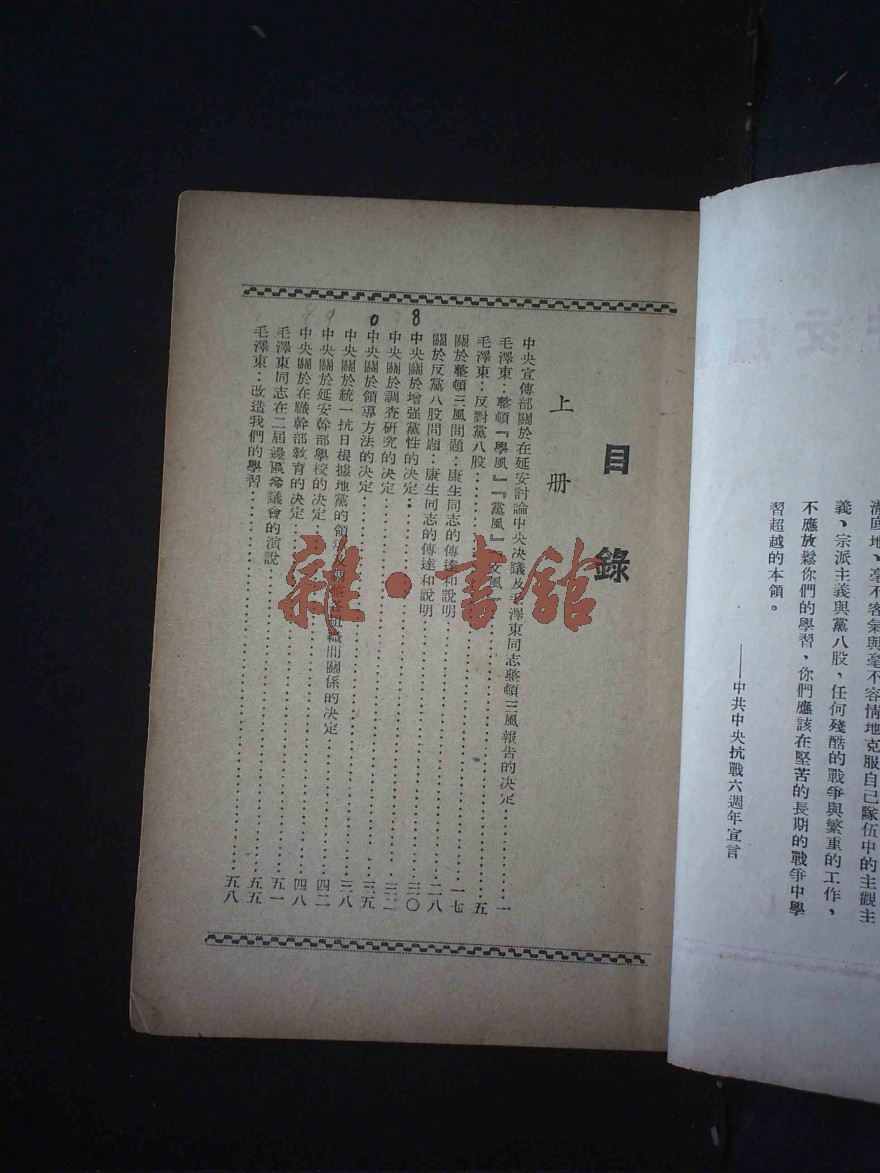 滿庭地、毫不客氣與毫不容情地克服自己隊伍中的主觀主
義、宗派主義與黨八股，任何殘酷的戰爭與繁重的工作，
不應放鬆你們的學習，你們應該在堅苦的長期的戰爭中學
習超越的本領。
——中共中央抗戰六週年宣言
目錄
上册
中央宣傳部關於在延安討論中央决議及毛澤東同志整頓三風報告的决定……一
毛澤東：整頓『學風』『黨風』『文風』……五
毛澤東：反對黨八股……一七
關於整頓三風問題：康生同志的傳達和說明……二八
關於反黨八股問題：康生同志的傳達和說明……三〇
中央關於增强黨性的决定……三二
中央關於調查研究的决定……三五
中央關於領導方法的决定……三八
中央關於統一抗日根據地黨的領導及 組織間關係的决定……四二
中央關於延安幹部學校的决定……四八
中央關於在職幹部教育的决定……五一
毛澤東同志在二屆邊區參議會的演說……五五
毛澤東：改造我們的學習……五八
8
0
雜·書館